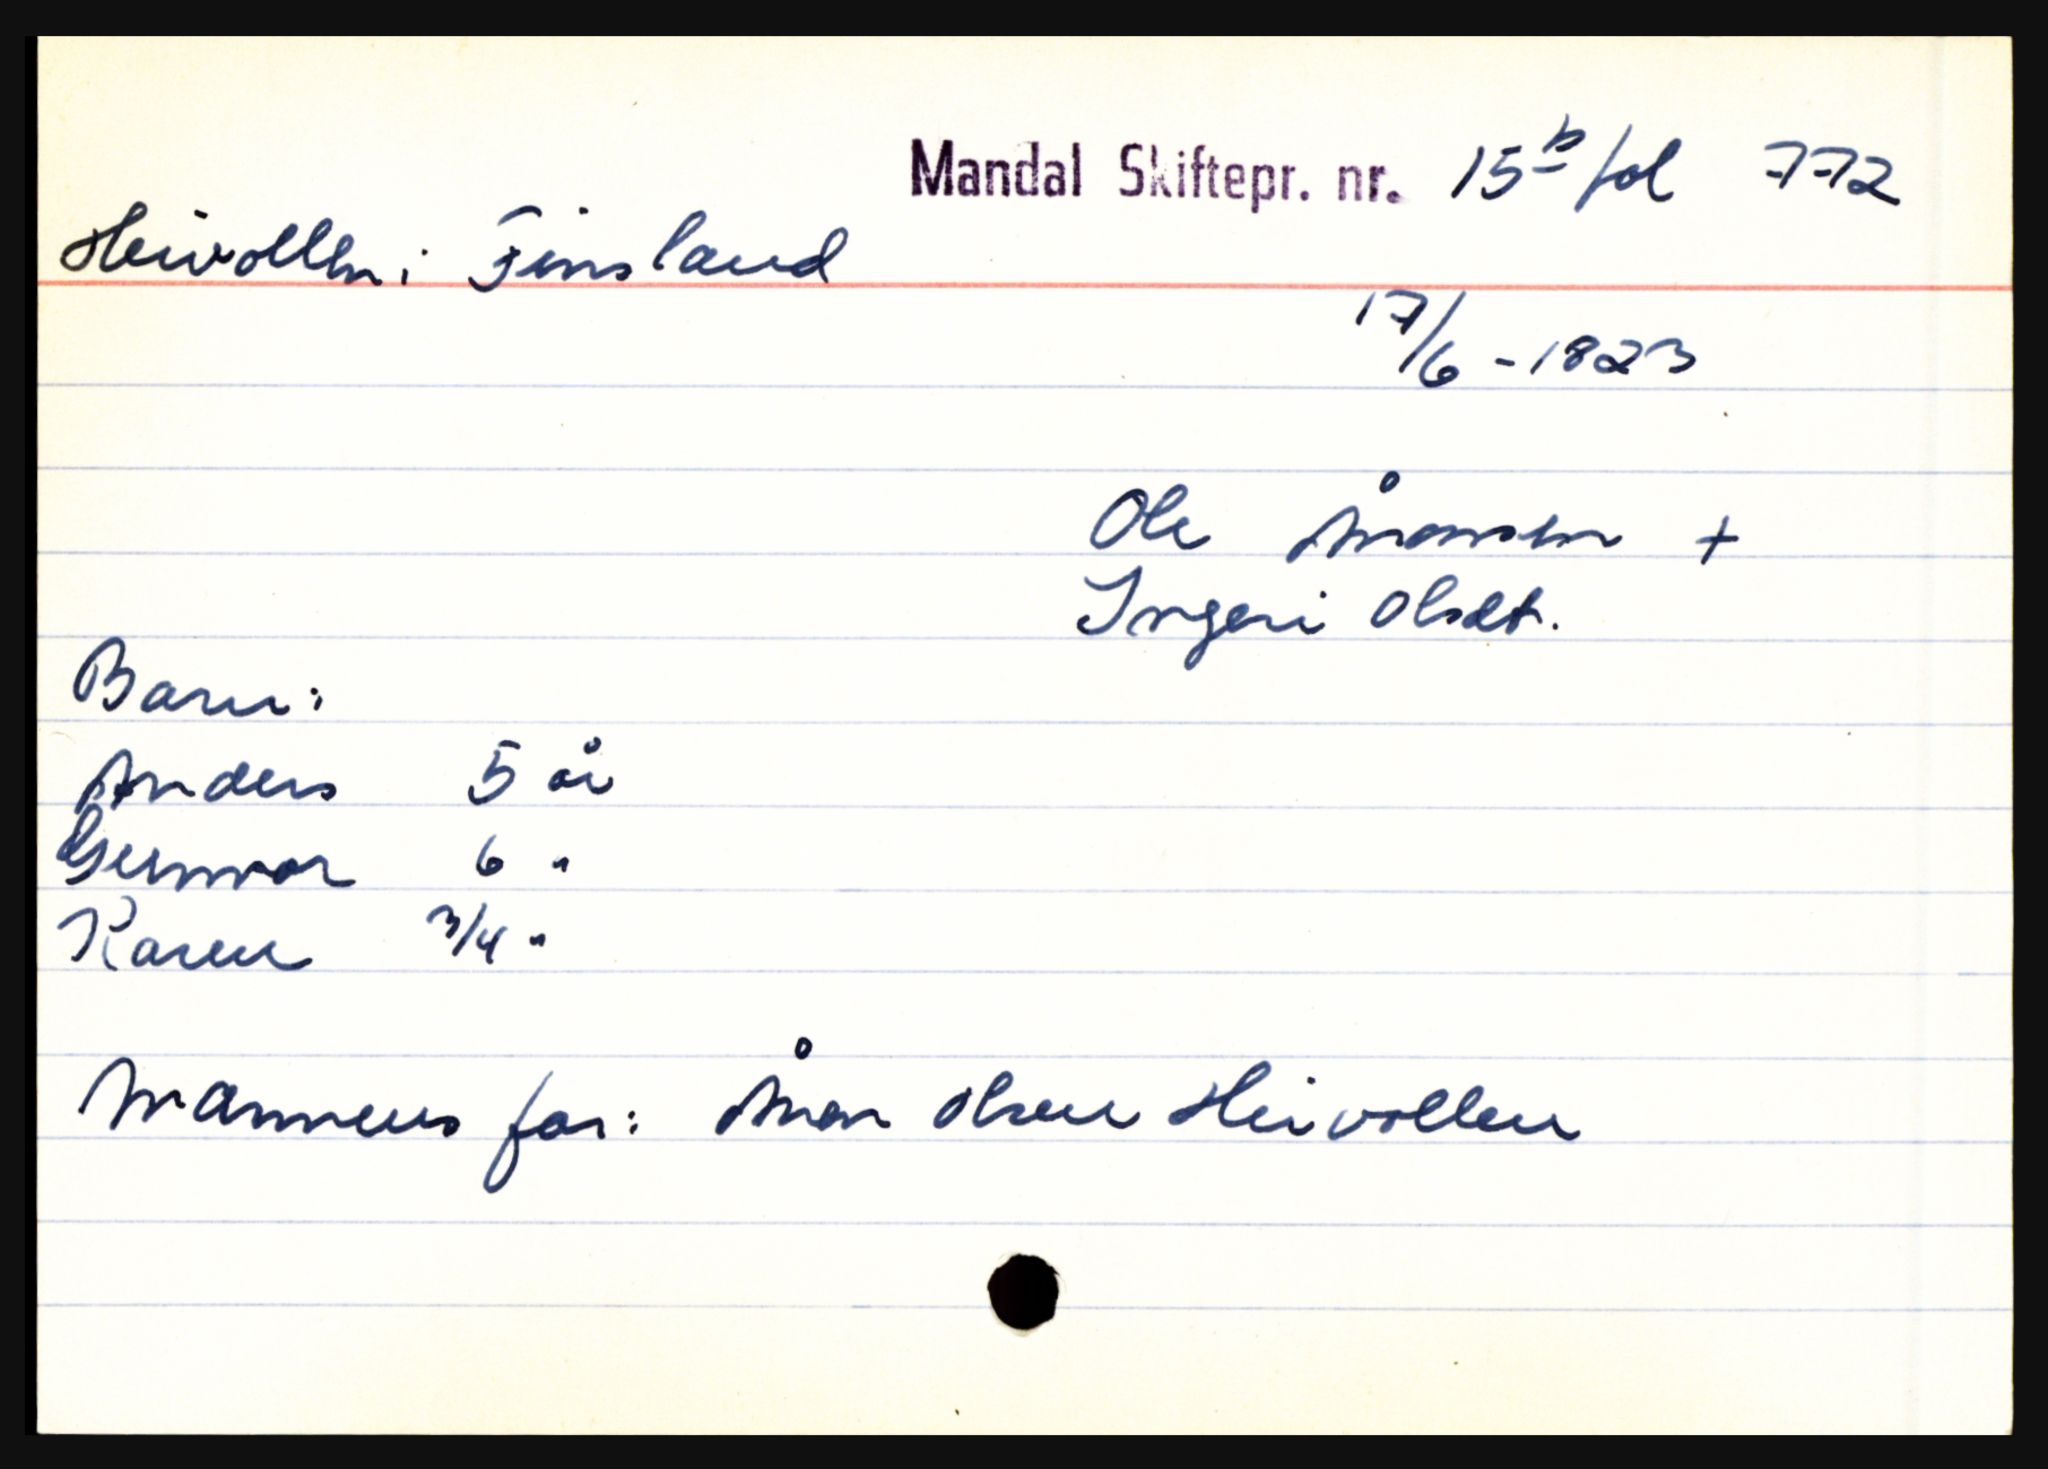 Mandal Skiftepr. nr. 15b fol 772
Heivollen i Finsland
17/6 - 1823
Ole Ånonsen +
Ingeri Olsdt.
Barn:
Anders 5 år
Gunvor 6 "
Karen 3/4 "
Mannens far: Ånon Olsen Heivollen